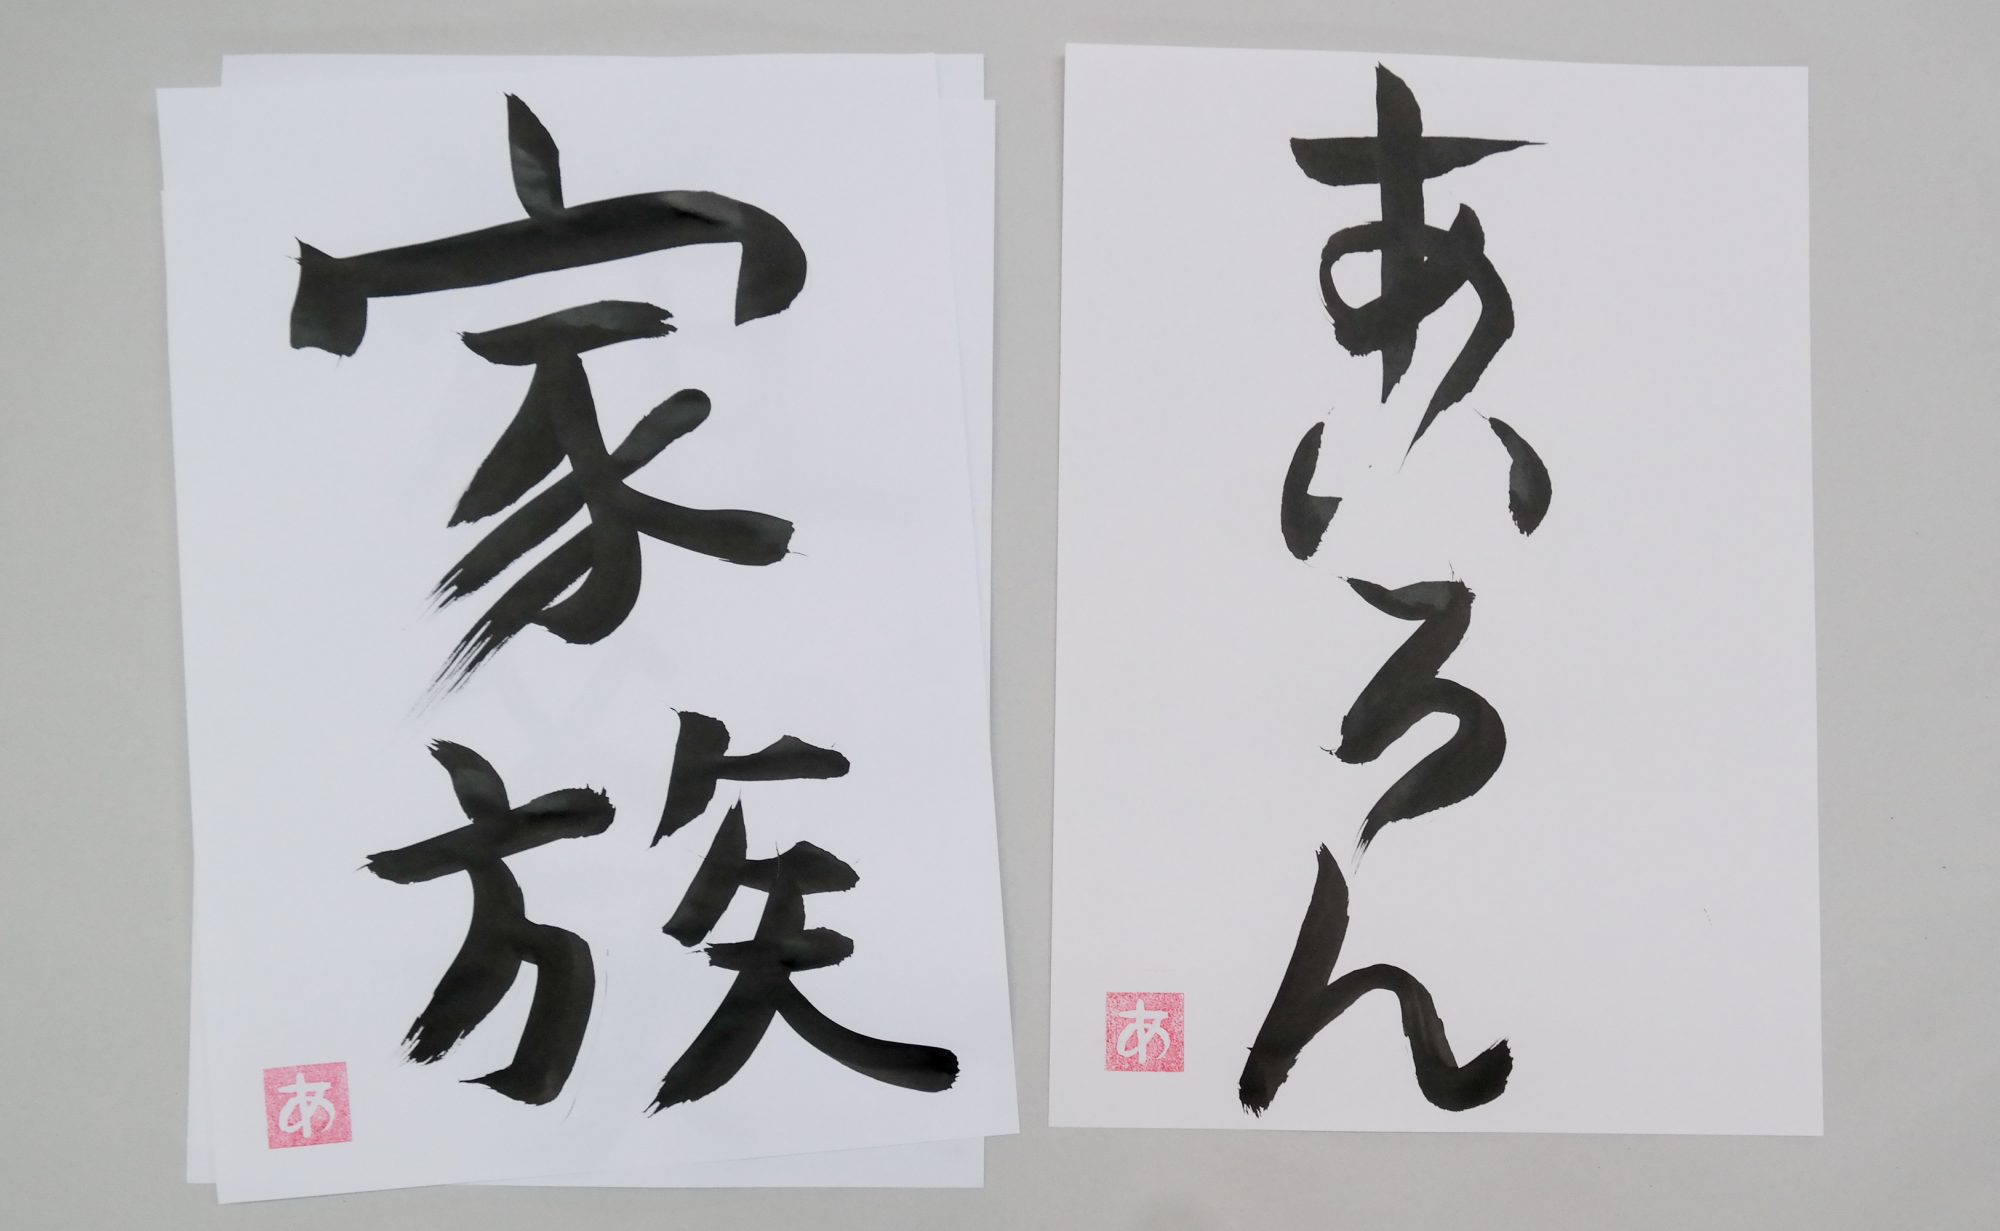 家族
あ
あいろん
あ